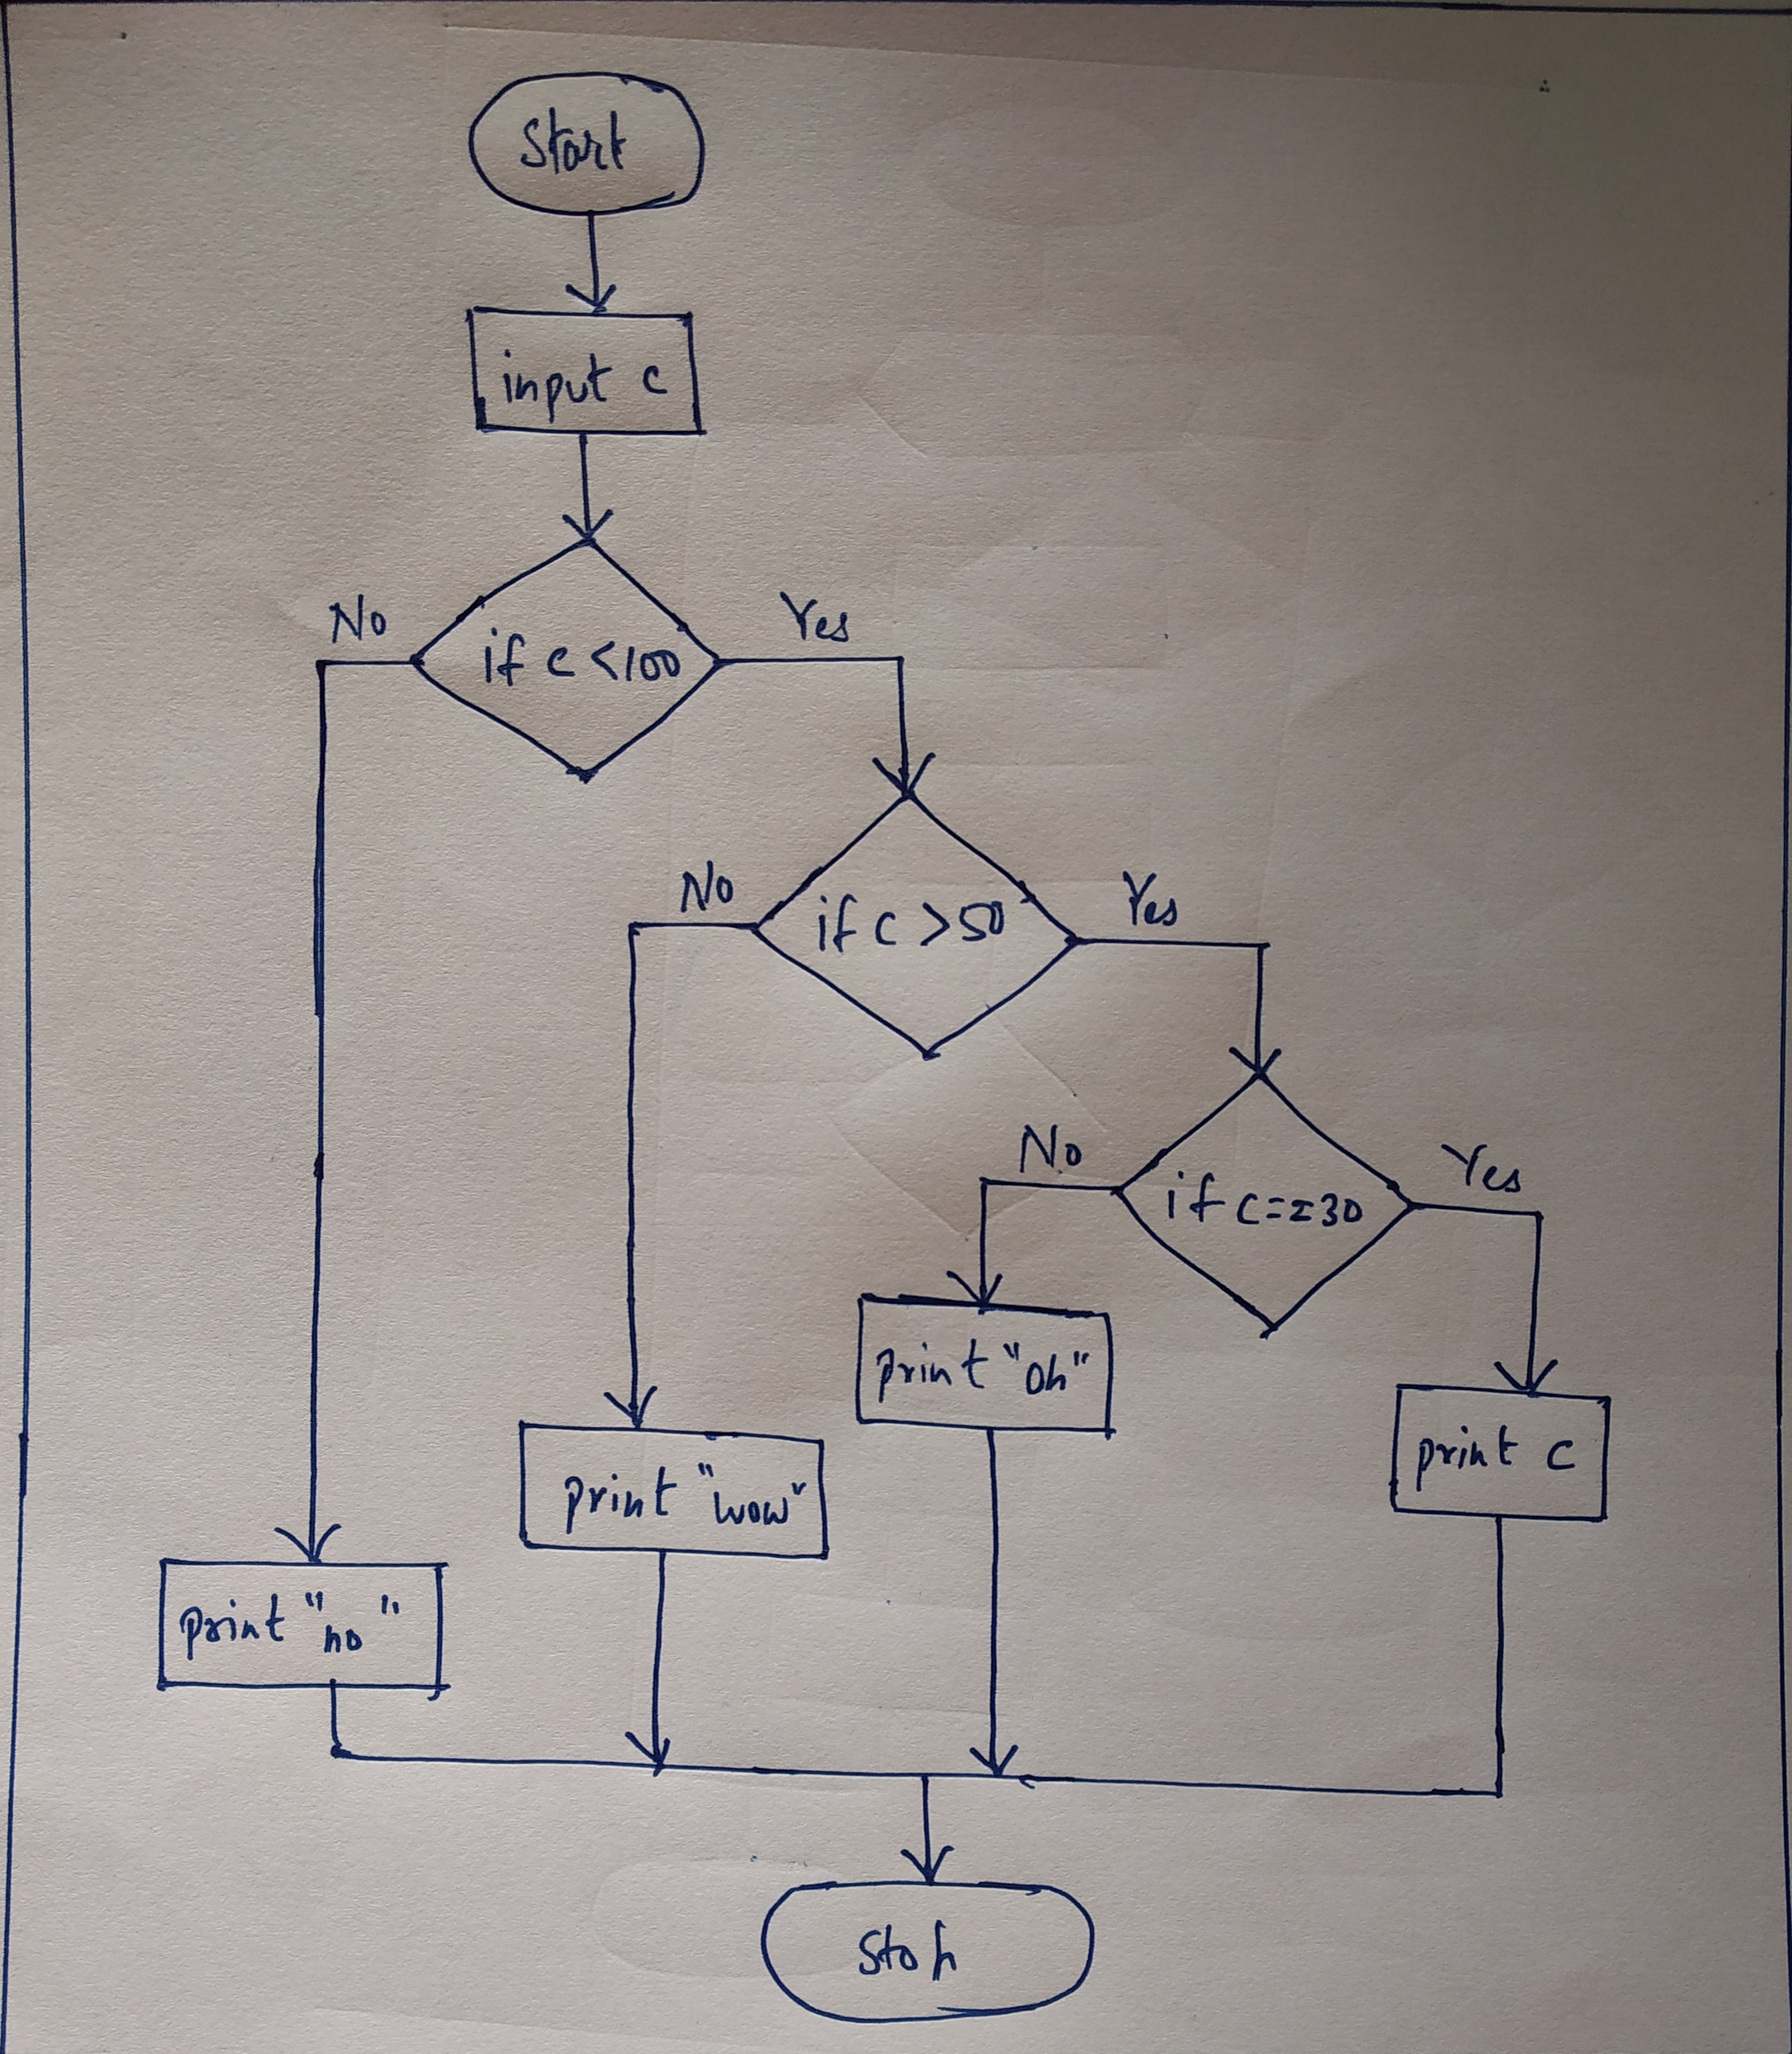 Start
input c
No
Yes
if c <100
No
Yes
if c >50
No
Yes
if c==30
print "oh"
print c
print "wow"
print "no"
Stop